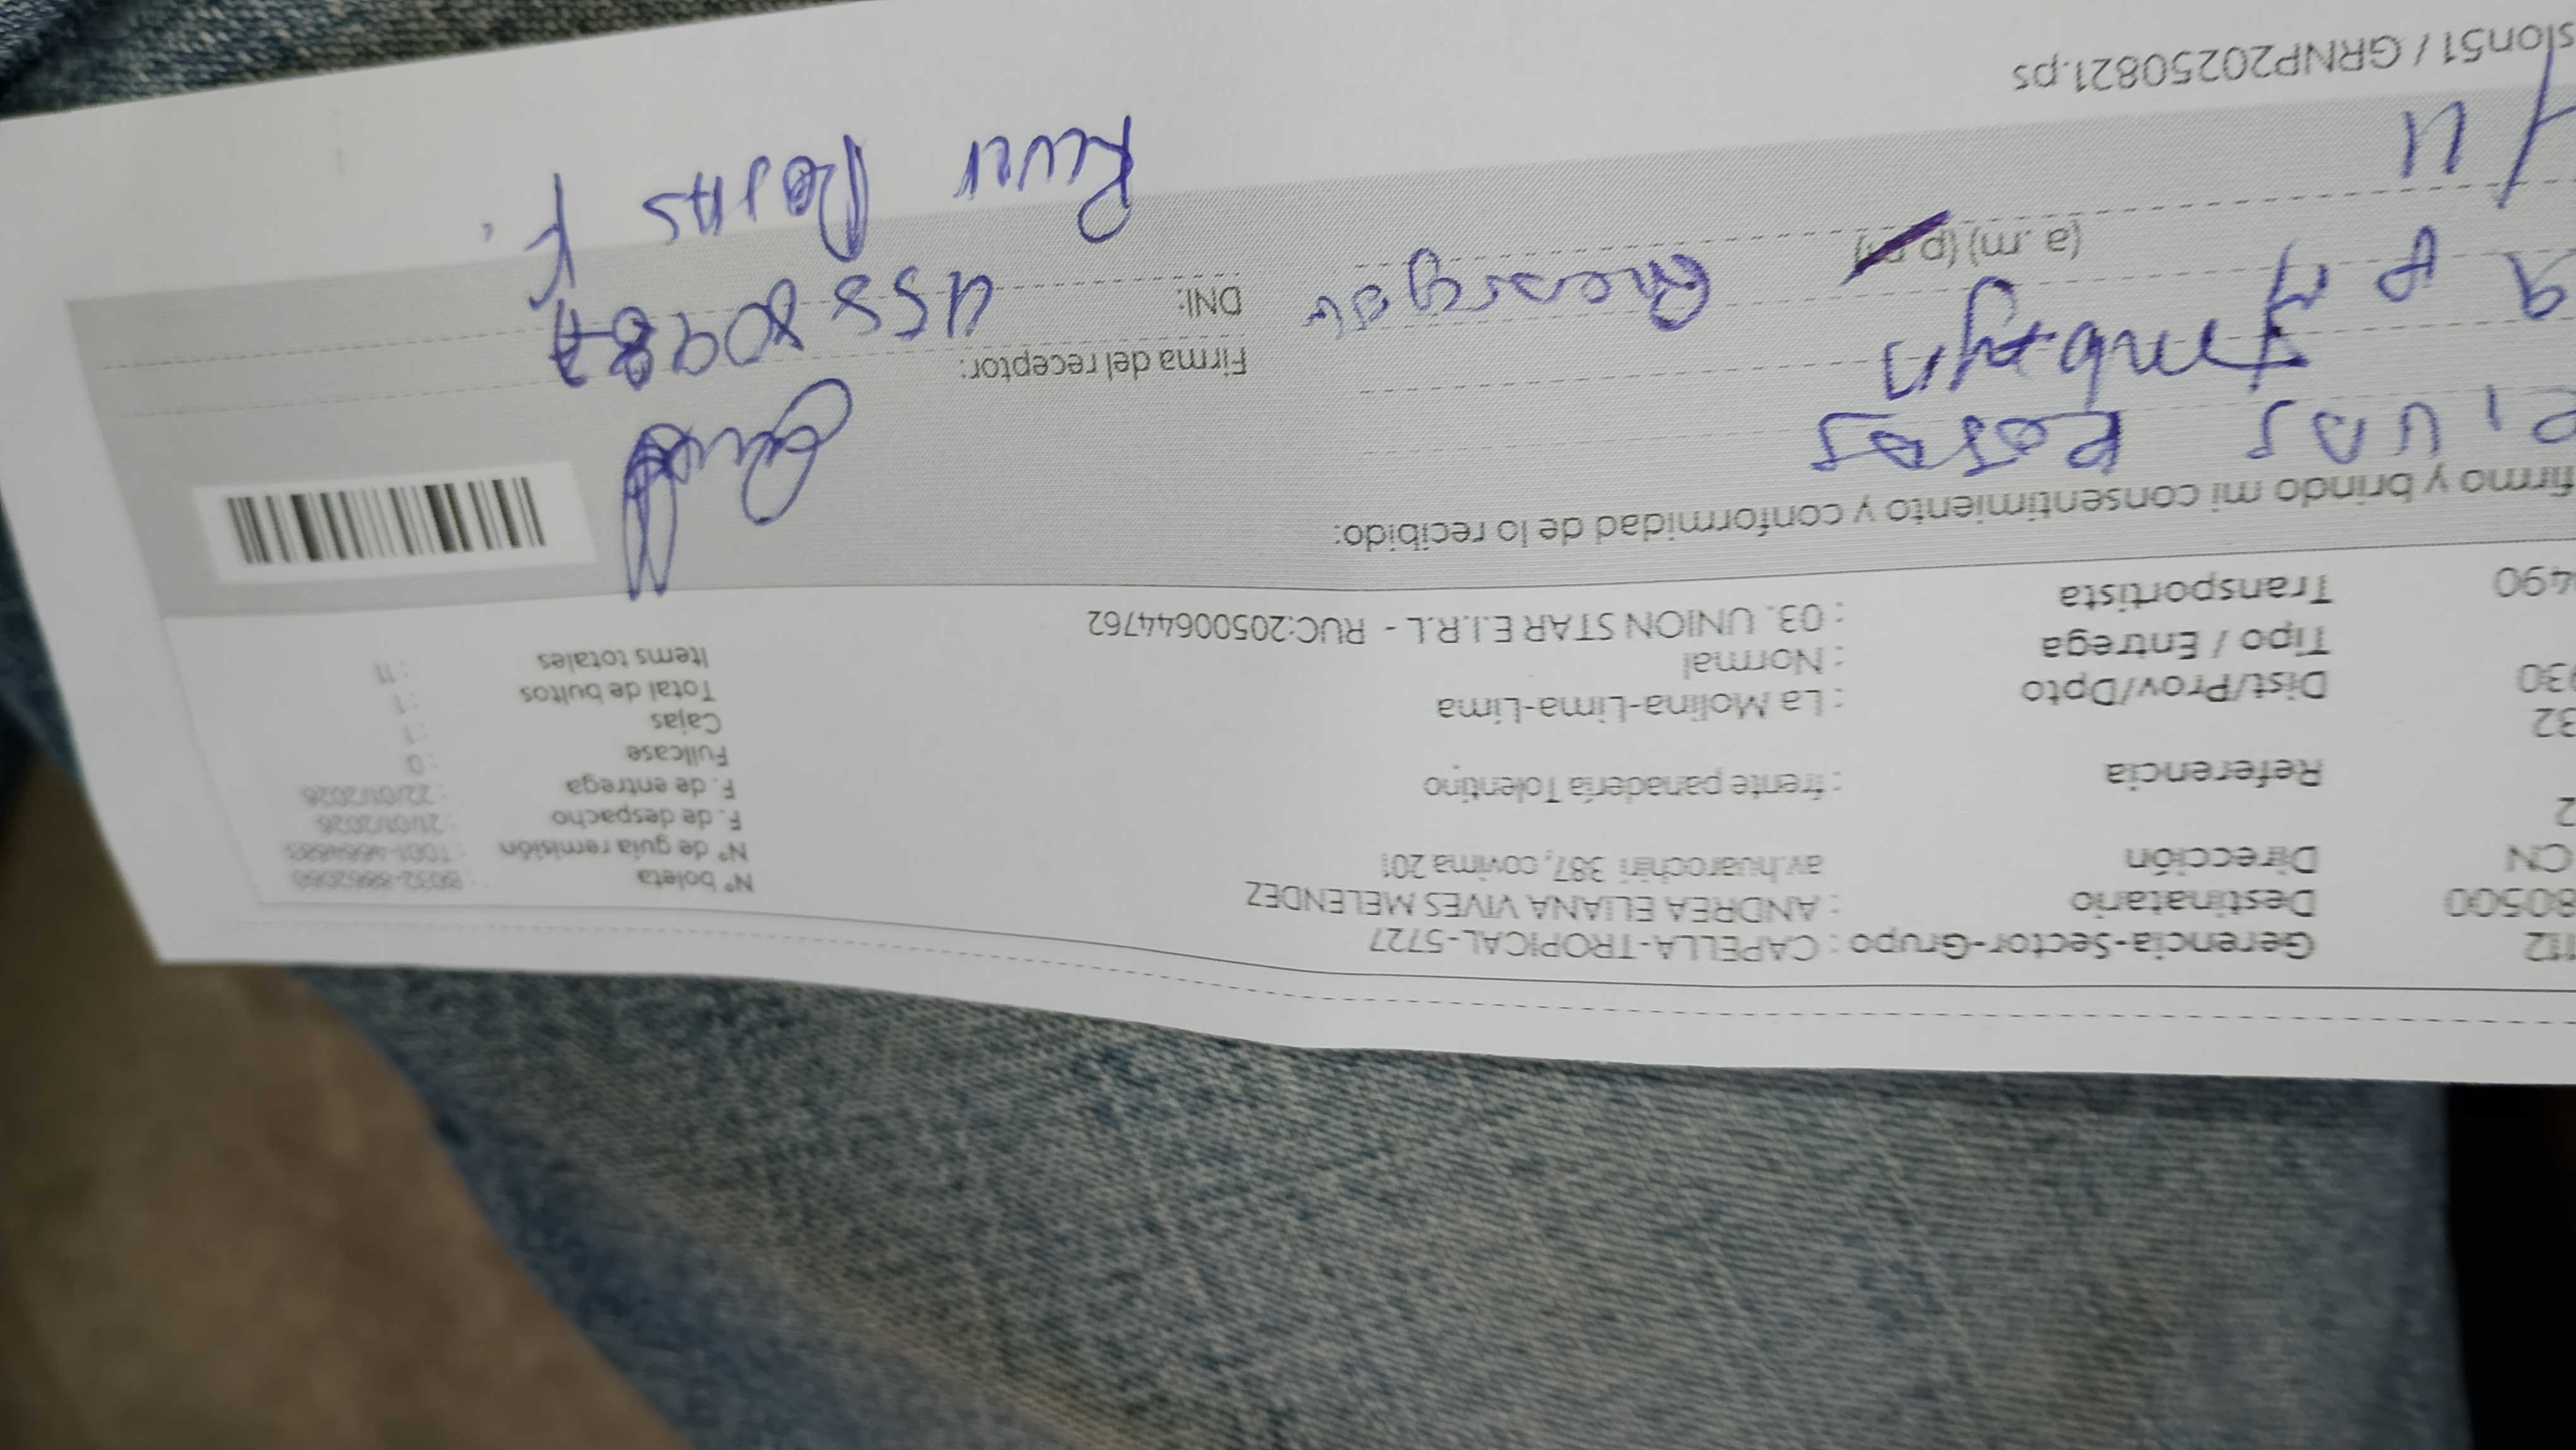 112 Gerencia-Sector-Grupo : CAPELLA-TROPICAL-5727
80500 Destinatario : ANDREA ELIANA VIVES MELENDEZ
CN Dirección av.huarochiri 387, covima 201
2
Referencia : frente panadería Tolentino
32
930 Dist/Prov/Dpto : La Molina-Lima-Lima
Tipo / Entrega : Normal
490 Transportista : 03. UNION STAR E.I.R.L - RUC:20500644762
N° boleta
N° de guía remisión
F. de despacho : 21/01/2026
F. de entrega : 22/01/2026
Fullcase : 0
Cajas : 1
Total de bultos : 1
Items totales : 11
firmo y brindo mi consentimiento y conformidad de lo recibido:
Rosas
(a .m) (p
Firma del receptor:
DNI:
Rojas F.
sion51 / GRNP20250821.ps